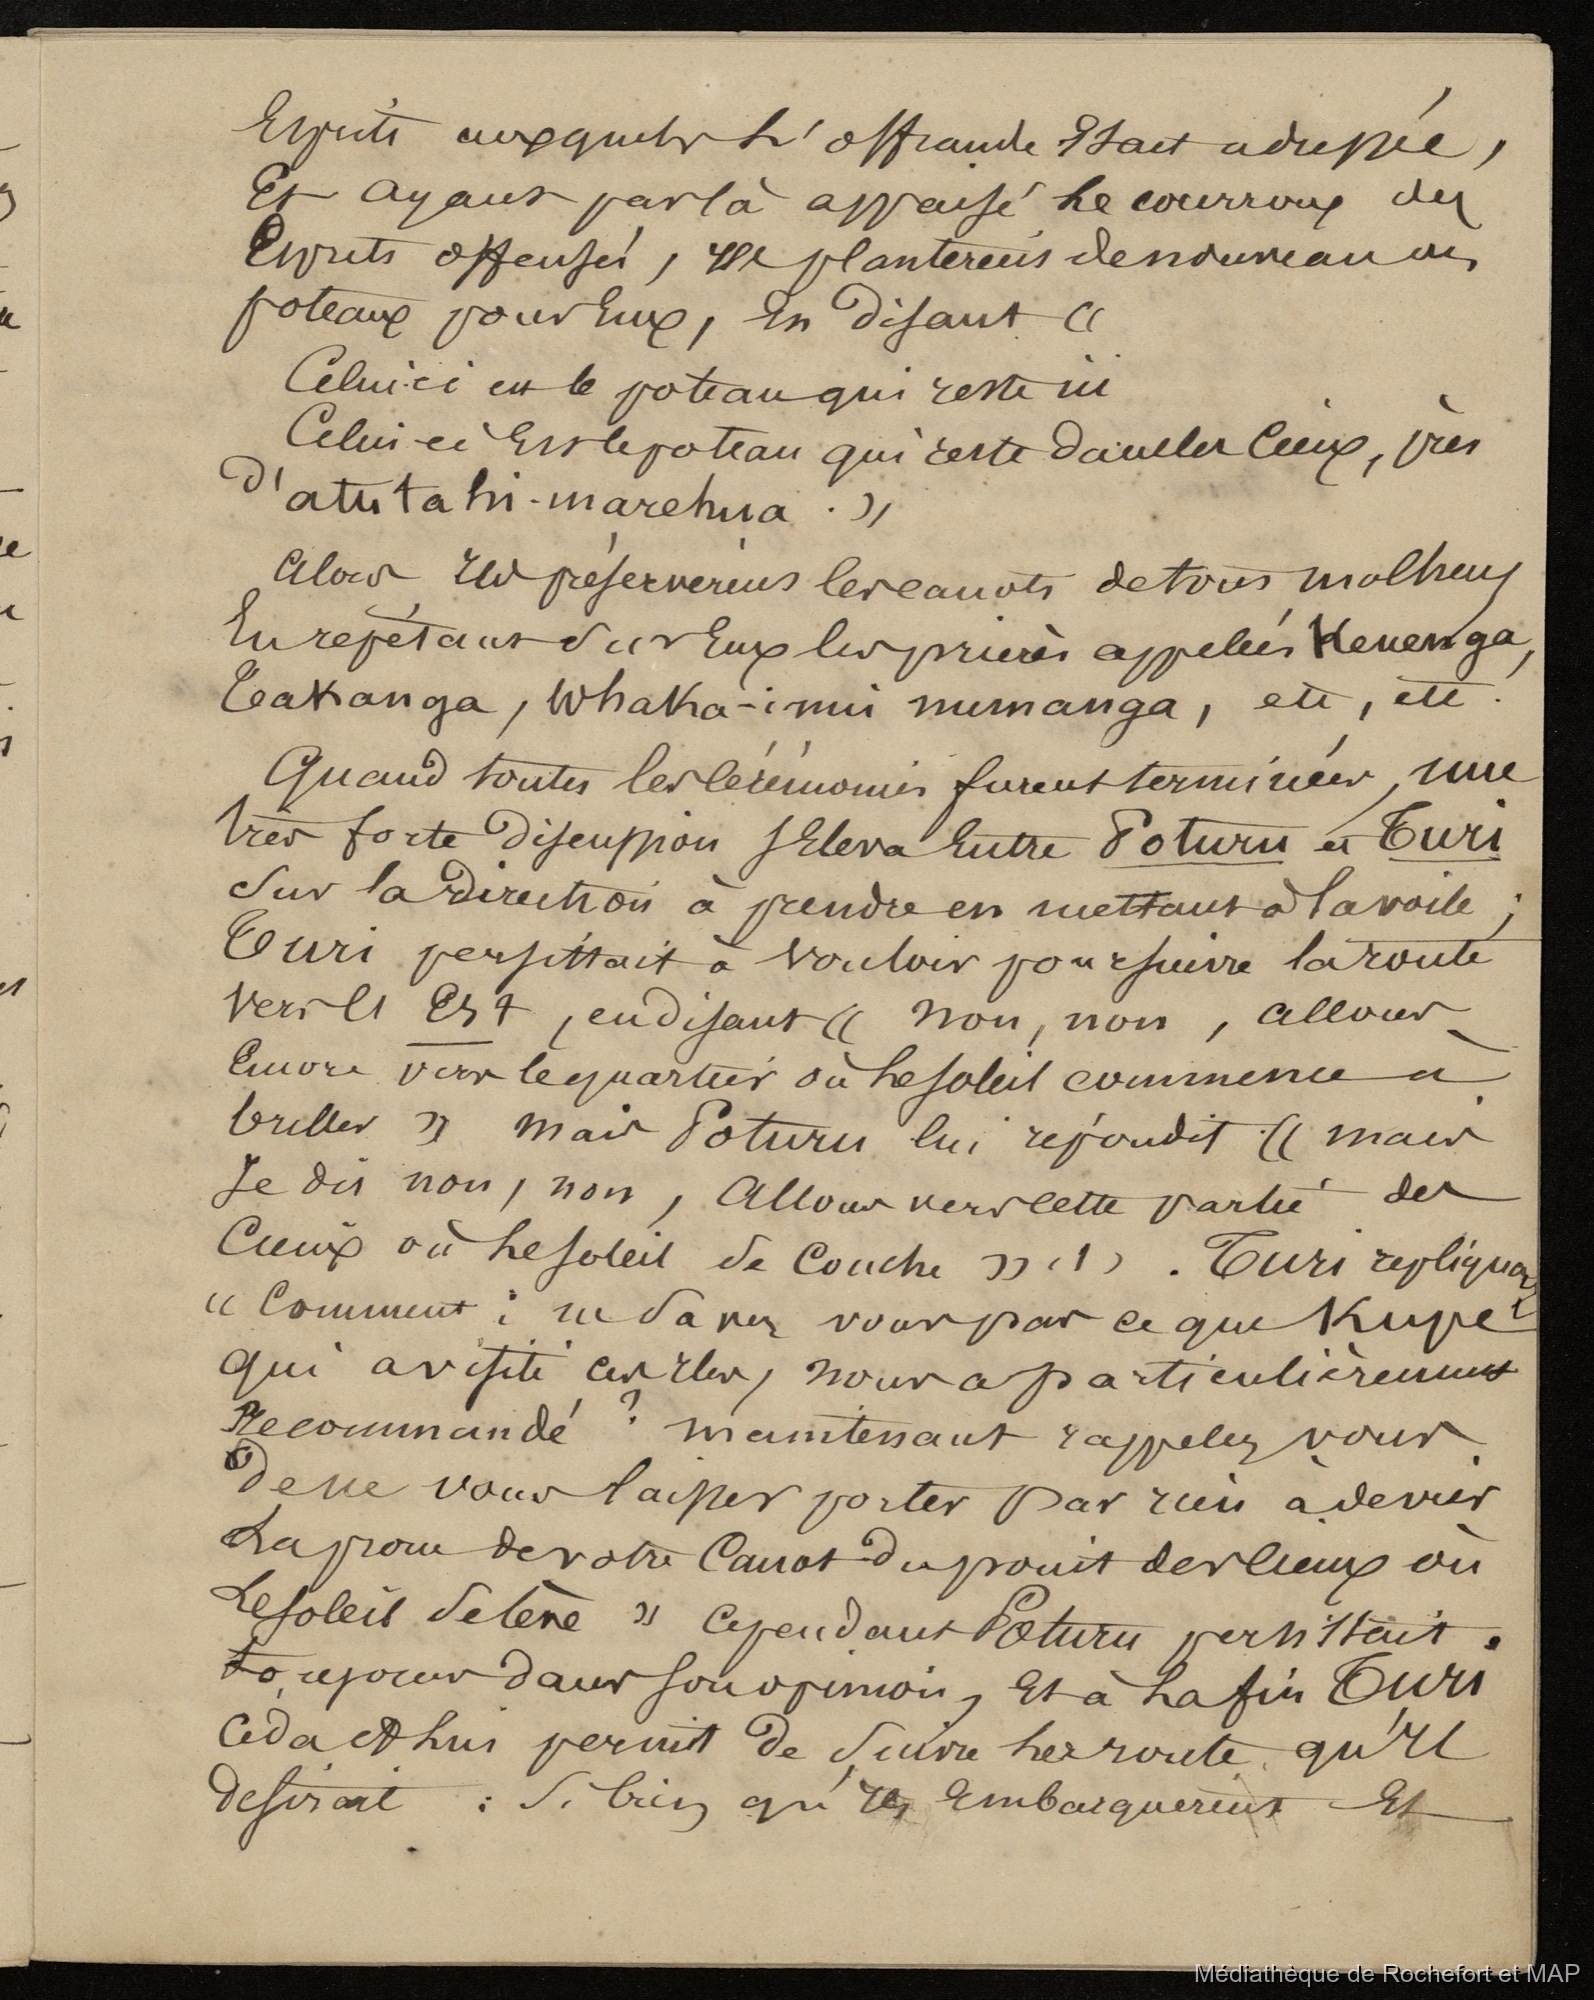 Esprits auxquels l'offrande Etait adressée,
Et ayant par là appaisé le courroux des
Esprits offensés, Ils plantèrent de nouveau des
poteaux pour Eux, En Disant «
Celui-ci est le poteau qui reste ici
Celui-ci Est le poteau qui reste dans les Cieux, près
d'atutahi-marehua . »
Alors Ils préservèrent les canots de tous malheurs
En repétant sur Eux les prières appelées Kenenga,
Teakanga, Whaka-inui numanga, etc, etc.
Quand toutes les Cérémonies furent terminées, une
très forte Discussion s'Eleva Entre Poturu et Turi
sur la Direction à prendre en mettant à la voile ;
Turi persistait à vouloir poursuivre la route
vers l'Est, en disant « Non, non, allons
Encore vers le quartier où le soleil commence à
briller » mais Poturu lui répondit « mais
Je dis non, non, Allons vers cette partie des
Cieux où le soleil se Couche » (1) . Turi repliqua
« Comment ; ne savez vous pas ce que Kupe
qui a visité ces Iles, nous a particulièrement
Recommandé ? maintenant rappelez vous
De ne vous laisser porter par rien à dévier
La proue de votre Canot du point des cieux où
Le soleil se lève » Cependant Poturu persistait
toujours dans son opinion, Et à La fin Turi
Céda et lui permit de suivre la route qu'Il
desirait : si bien qu'Ils Embarquèrent Et
Médiathèque de Rochefort et MAP